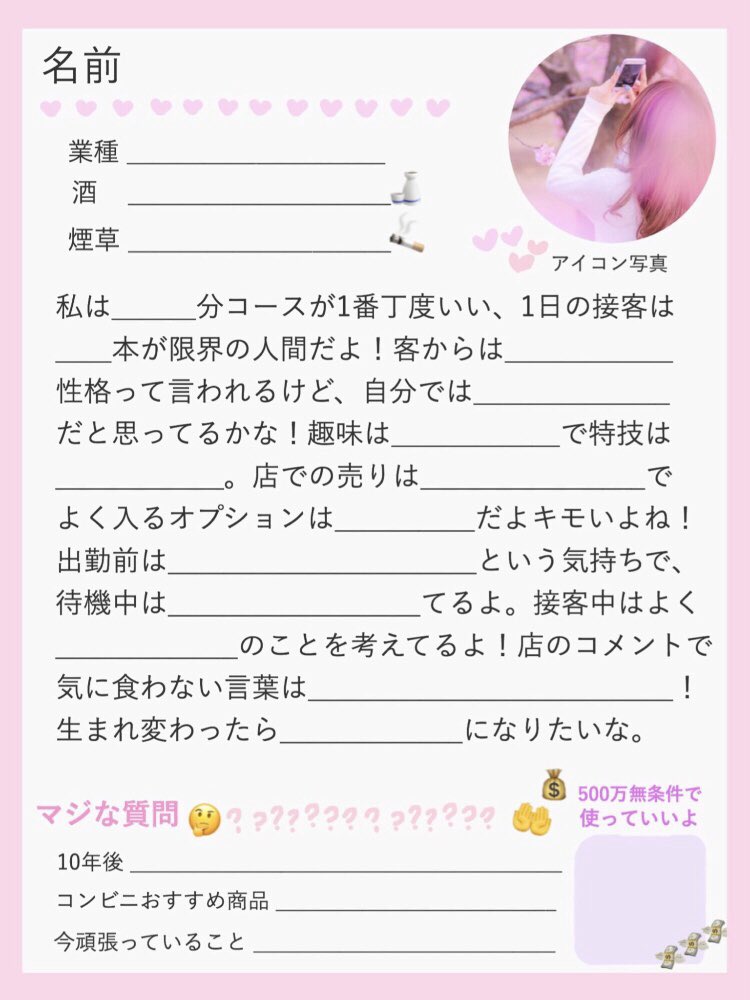 名前
業種 ____________________
酒 ____________________
煙草 ____________________
アイコン写真
私は______分コースが1番丁度いい、1日の接客は
____本が限界の人間だよ！客からは____________
性格って言われるけど、自分では______________
だと思ってるかな！趣味は____________で特技は
____________。店での売りは________________で
よく入るオプションは__________だよキモいよね！
出勤前は______________________という気持ちで、
待機中は__________________てるよ。接客中はよく
_____________のことを考えてるよ！店のコメントで
気に食わない言葉は__________________________！
生まれ変わったら_____________になりたいな。
マジな質問 🤔? ??????? ??????
500万無条件で
使っていいよ
10年後 ____________________
コンビニおすすめ商品 ____________________
今頑張っていること ____________________